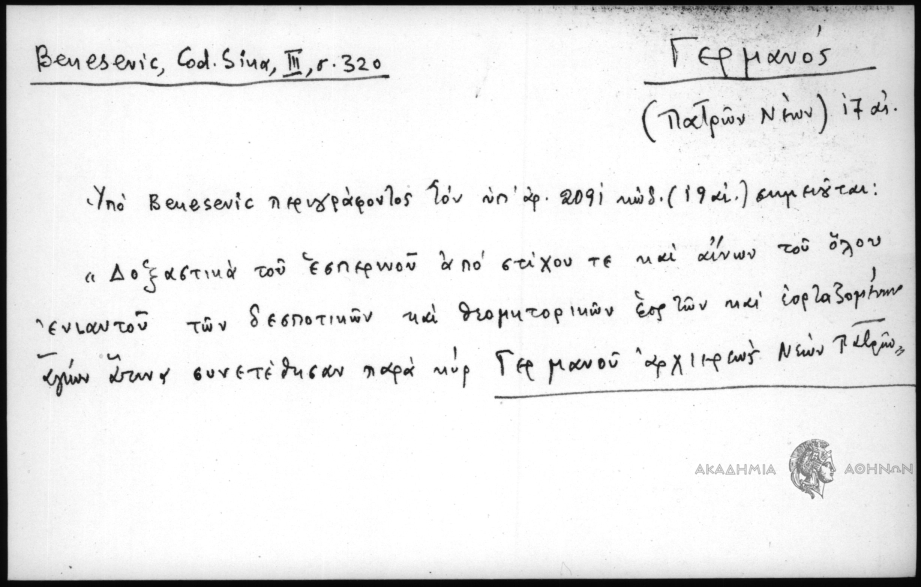 Benesevic, Cod. Sina, III, σ. 320
Γερμανός
(Πατρῶν Νέων) 17 αἰ.
Ὑπό Benesevic περιγράφοντος τόν ὑπ' ἀρ. 2091 κώδ. (19 αἰ.) σημειοῦται:
« Δοξαστικὰ τοῦ ἑσπερινοῦ ἀπό στίχου τε καὶ αἴνων τοῦ ὅλου
ἐνιαυτοῦ τῶν δεσποτικῶν καὶ θεομητορικῶν ἑορτῶν καὶ ἑορταζομένων
ἁγίων ἅτινα συνετέθησαν παρὰ κύρ Γερμανοῦ ἀρχιερέως Νέων Πατρῶν»
ΑΚΑΔΗΜΙΑ ΑΘΗΝΩΝ